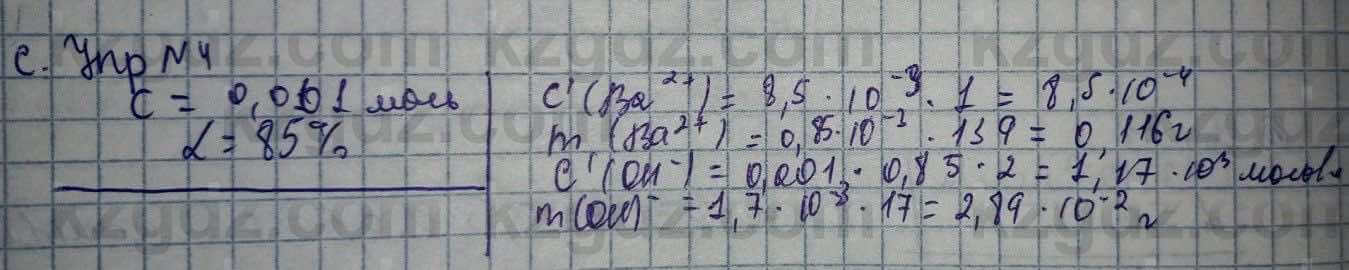 с. Упр N 4
C = 0,001 моль
α = 85%
C (Ba²⁺) = 8,5 · 10⁻³ · 1 = 8,5 · 10⁻⁴
m (Ba²⁺) = 0,85 · 10⁻³ · 139 = 0,116 г
C (OH⁻) = 0,001 · 0,85 · 2 = 1,17 · 10³
m(OH)⁻ = 1,7 · 10⁻³ · 17 = 2,89 · 10⁻² г
kzgdz.com